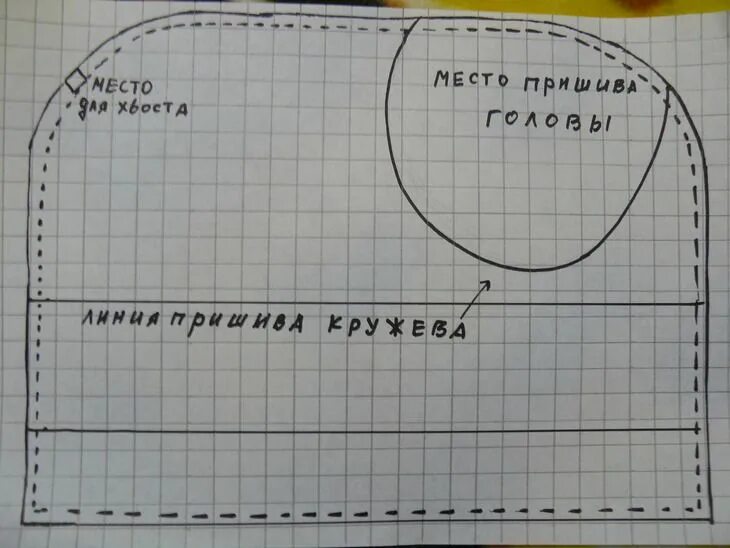 МЕСТО
для хвоста
МЕСТО ПРИШИВА
ГОЛОВЫ
ЛИНИЯ ПРИШИВА КРУЖЕВА